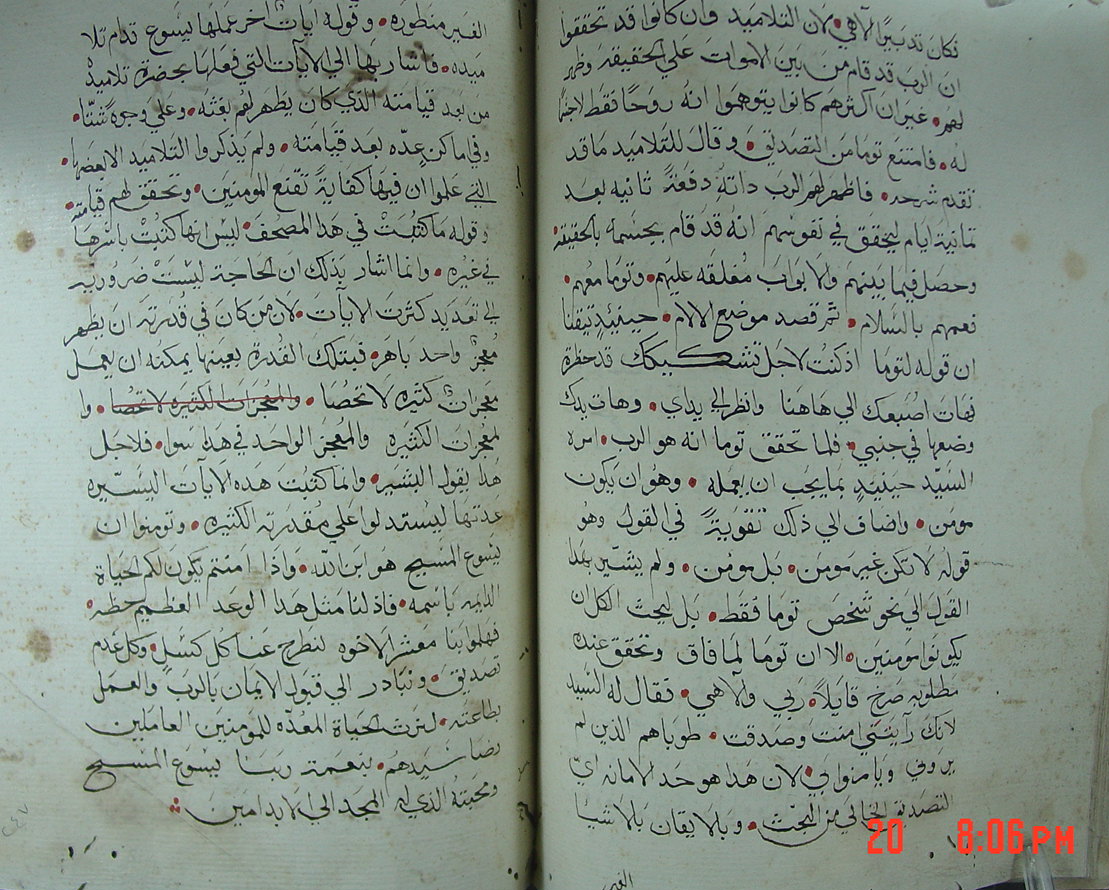 فكان تدبيرًا لاهي لان التلاميد وان كانوا قد تحققوا
ان الرب قد قام من بين الاموات علي الحقيقه وظهر
لهم • غير ان اكثرهم كانوا يتوهموا انه روحًا فقط لا جسمًا
له • فامتنع توما من التصديق • وقال للتلاميد ما قد
تقدم شرحه • فاظهر لهم الرب داته دفعةً ثانيه بعد
ثمانية ايام ليتحقق في نفوسهم انه قد قام بجسمه بالحقيقه •
وحصل فيما بينهم والابواب مغلقه عليهم • وتوما معهم •
فعمهم بالسلام • ثم قصد موضع الالام • حينيدٍ تيقنا
ان قوله لتوما اذ كنت لاجل تشككك قد حظرة
فهات اصبعك الي هاهنا وانظر الي يداي • وهات يدك
وضعها في جنبي • فلما تحقق توما انه هو الرب • امره
السيد حينيدٍ بما يجب ان يعمله • وهو ان يكون
مومن • واضاف الي ذلك تقويةً في القول وهو
قوله لا تكن غير مومن • بل مومن • ولم يشير بهدا
القول الي نحو شخص توما فقط • بل ليحث الكل ان
يكونوا مومنين • الا ان توما لما فاق وتحقق عنده
مطلوبه صرخ قايلاً • ربي والاهي • فقال له السيد
لانك رايتني امنت وصدقت • طوباهم الذين لم
يروني ويامنوا بي • لان هدا هو حد الامانه اي
التصديق الخالي من البحث • وبلا يقان بالاشيا
الغير
الغير منظوره • وقوله ايات اخر عملها يسوع قدام تلا
ميده • فاشار بها الي الايات التي فعلها بحضرة تلاميذه
من بعد قيامته الذي كان يظهر لهم بغته • وعلي وجوه شتّا •
وفي اماكن عدّه بعد قيامته • ولم يذكروا التلاميد الا بعضها •
التي علموا ان فيها كفايةً تقنع المومنين • وتحقق لهم قيامته •
وقوله ما كتبت في هدا المصحف • ليس انها كتبت باسرها
في غيره • وانما اشار بذلك ان الحاجة ليست ضروريه
الي تعديد كثرت الايات • لان من كان في قدرته ان يظهر
معجز واحد باهر • فبتلك القدرة بعينها يمكنه ان يعمل
معجزات كثيره لا تحصا • والمعجزات الكثيره لا تحصا • وا
لمعجزات الكثيره والمعجز الواحد في هدا سوا • فلاجل
هدا يقول البشير • وانما كتبت هده الايات اليسيره
عدتها ليستدلوا علي مقدرته الكثيره • وتومنوا ان
يسوع المسيح هو ابن الله • واذا امنتم يكون لكم الحياة
الدايمه باسمه • فاذ لنا متل هدا الوعد العظيم حظه •
فهلموا بنا معشر الاخوه لنطرح عنا كل كسلٍ • وكل عدم
تصديق • ونبادر الي قبول الايمان بالرب والعمل
بطاعته • لنرث الحياة المعده للمومنين العاملين
رضا سيدهم • بنعمة ربنا يسوع المسيح
ومحبته الذي له المجد الي الابد امين
20 8:06 PM